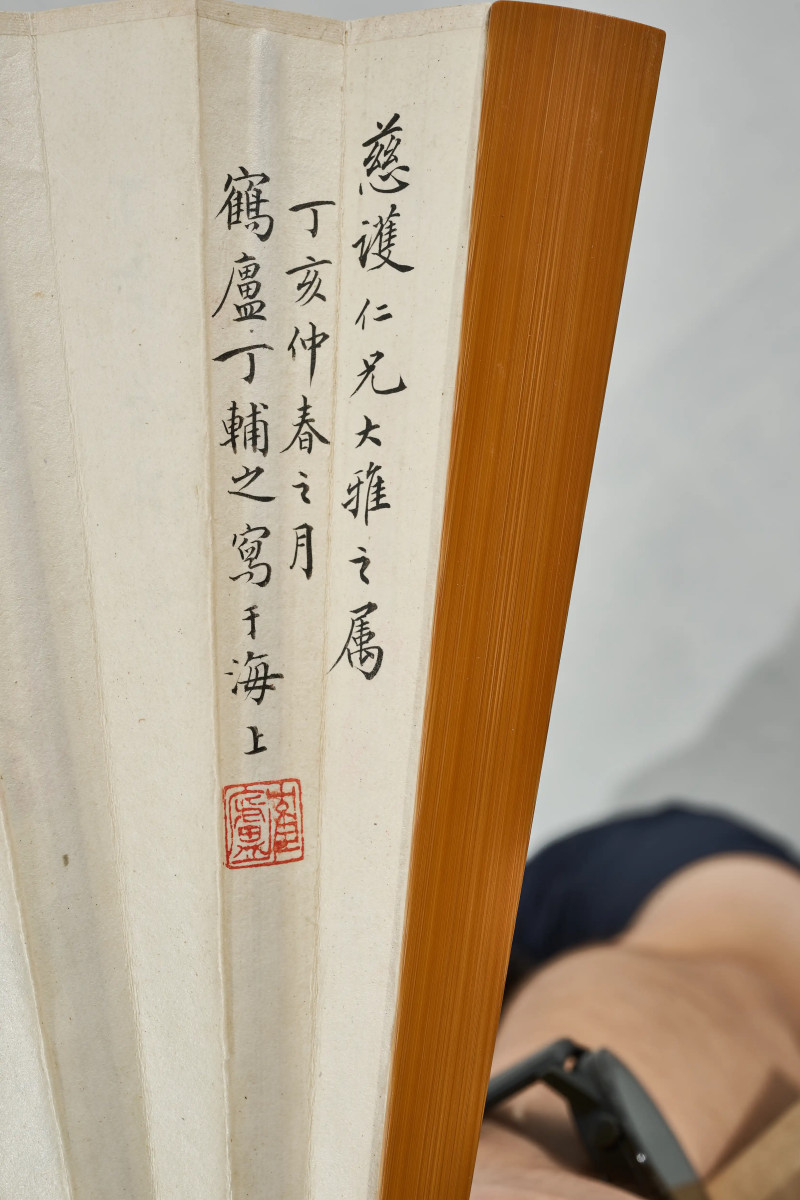 慈護仁兄大雅之属
丁亥仲春之月
鶴廬丁輔之寫于海上
隺廬